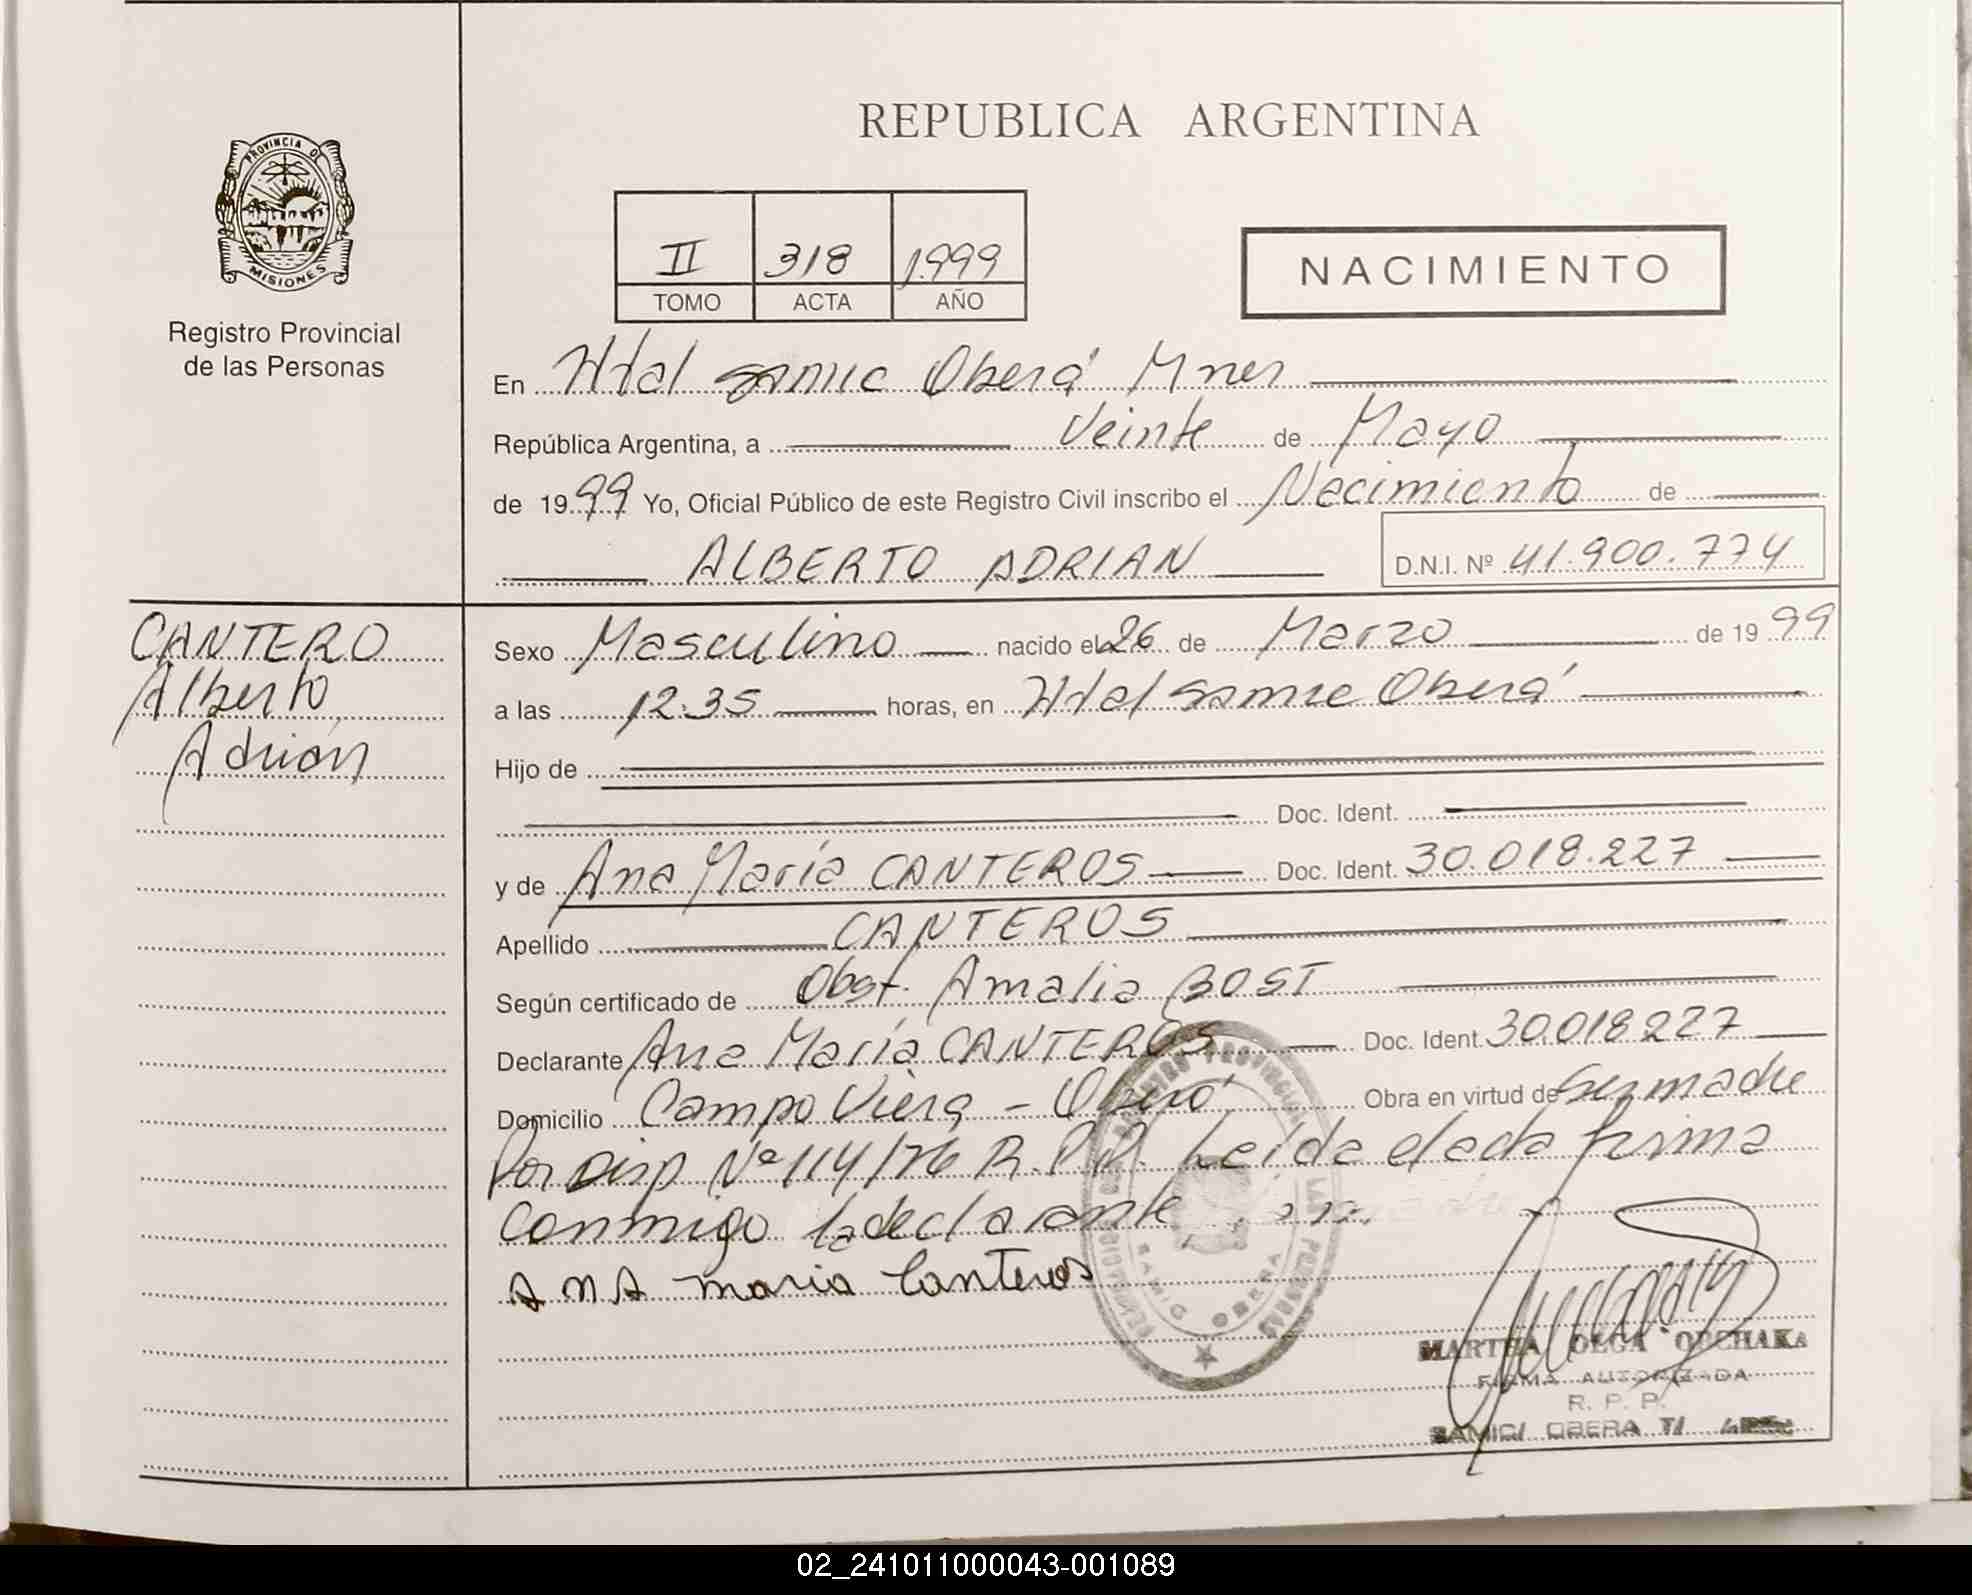 REPUBLICA ARGENTINA
PROVINCIA DE
MISIONES
Registro Provincial
de las Personas
II 318 1999
TOMO ACTA AÑO
NACIMIENTO
En Htal samic Oberá Mnes
República Argentina, a Veinte de Mayo
de 1999 Yo, Oficial Público de este Registro Civil inscribo el Nacimiento de
ALBERTO ADRIAN D.N.I. Nº 41.900.774
CANTERO
Alberto
Adrián
Sexo Masculino nacido el 26 de Marzo de 1999
a las 12:35 horas, en Htal samic Oberá
Hijo de
Doc. Ident.
y de Ana María CANTEROS Doc. Ident. 30.018.227
Apellido CANTEROS
Según certificado de Obst. Amalia BOST
Declarante Ana María CANTEROS Doc. Ident. 30.018.227
Domicilio Campo Viera - Oberá Obra en virtud de Ser madre
Por Disp Nº 114/76 R.P.P. Leída el acta firma
conmigo la declarante
ANA maria Canteros
SAMIC OBERA
MARTHA OLGA ORCHAKA
FIRMA AUTORIZADA
R. P. P.
SAMIC/ OBERA
02_241011000043-001089